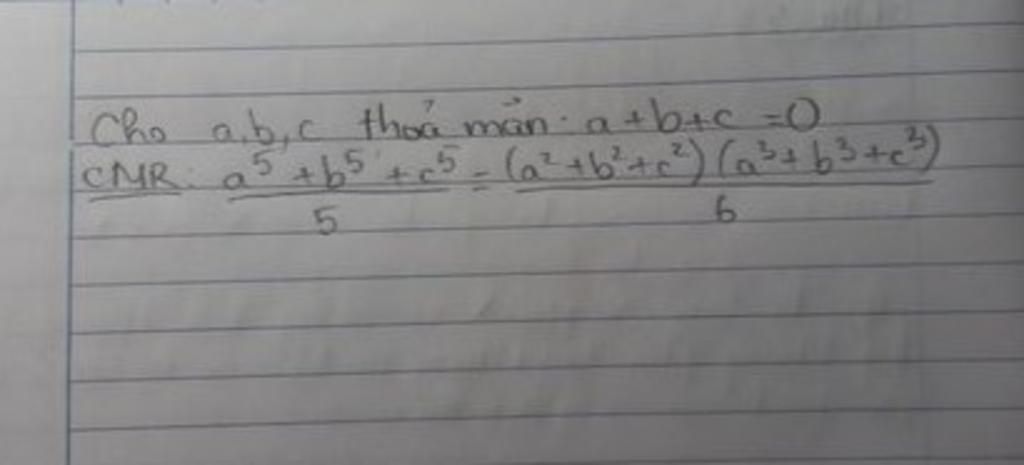 Cho a,b,c thoả mãn: a+b+c=0
CMR: a⁵+b⁵+c⁵/5 = (a²+b²+c²)(a³+b³+c³)/6